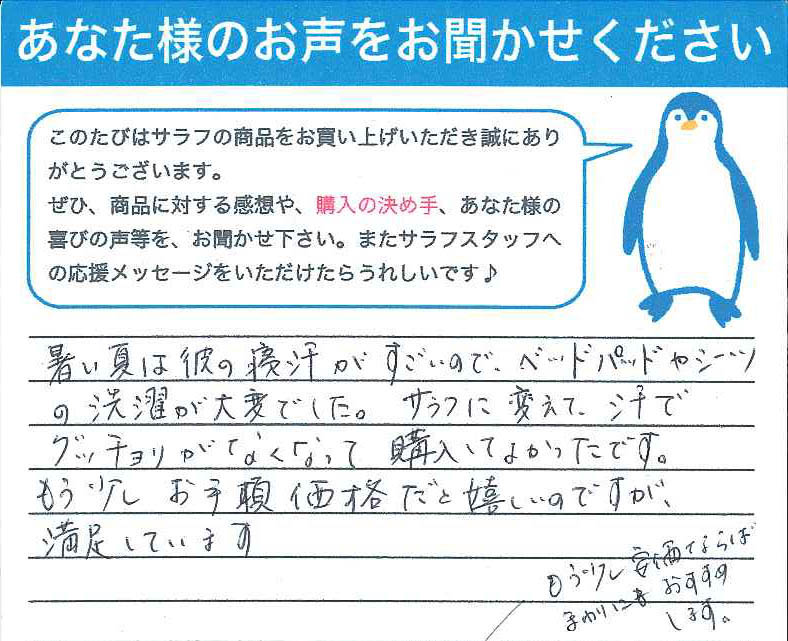 あなた様のお声をお聞かせください
このたびはサラフの商品をお買い上げいただき誠にあり
がとうございます。
ぜひ、商品に対する感想や、購入の決め手、あなた様の
喜びの声等を、お聞かせ下さい。またサラフスタッフへ
の応援メッセージをいただけたらうれしいです♪
暑い夏は彼の寝汗がすごいので、ベッドパッドやシーツ
の洗濯が大変でした。サラフに変えて、汗で
グッチョリがなくなって購入してよかったです。
もう少しお手頃価格だと嬉しいのですが、
満足しています
もう少し安価ならば
まわりにもおすすめ
します。